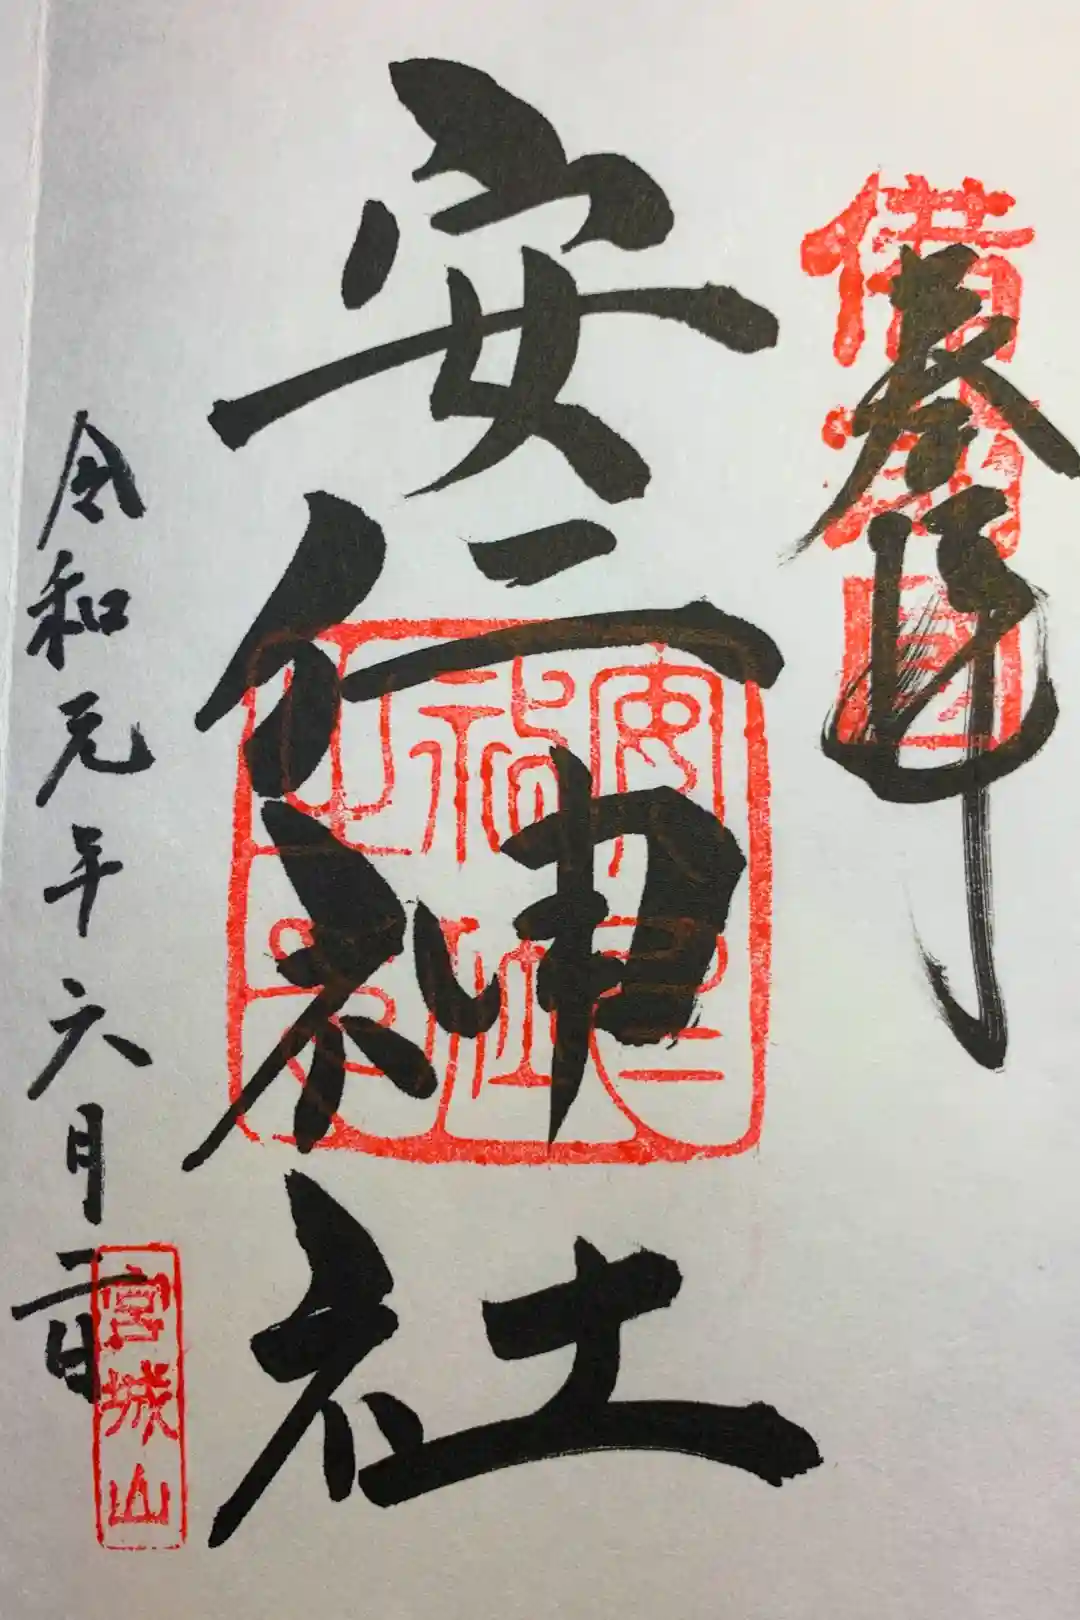 奉拝
備前國
安仁神社
安仁神社之印
令和元年六月二日
宮城山